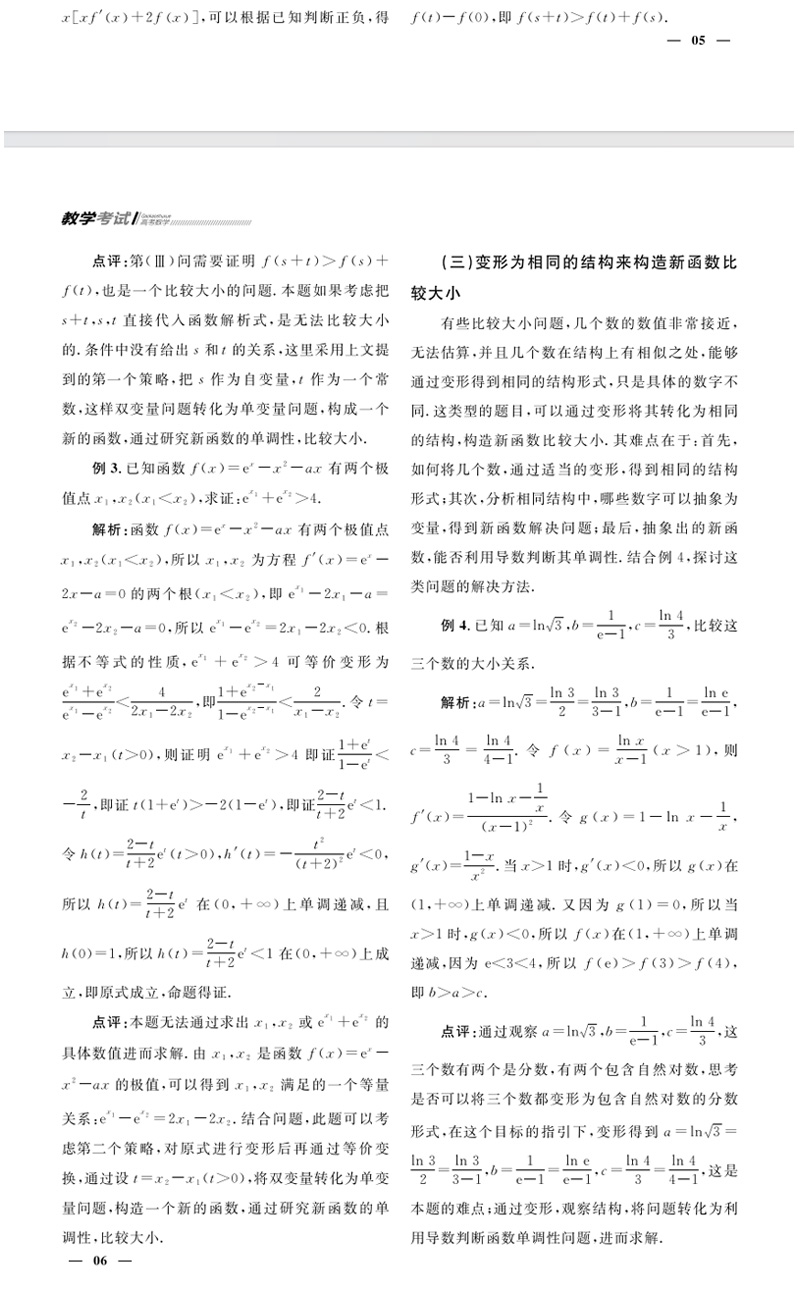 x[xf′(x)+2f(x)],可以根据已知判断正负,得
f(t)-f(0),即 f(s+t)>f(t)+f(s).
— 05 —
教学考试 高考数学
点评:第(Ⅲ)问需要证明 f(s+t)>f(s)+
f(t),也是一个比较大小的问题.本题如果考虑把
s+t,s,t 直接代入函数解析式,是无法比较大小
的.条件中没有给出 s 和 t 的关系,这里采用上文提
到的第一个策略,把 s 作为自变量,t 作为一个常
数,这样双变量问题转化为单变量问题,构成一个
新的函数,通过研究新函数的单调性,比较大小.
例 3.已知函数 f(x)=e^x-x²-ax 有两个极
值点 x₁,x₂(x₁<x₂),求证:e^{x₁}+e^{x₂}>4.
解析:函数 f(x)=e^x-x²-ax 有两个极值点
x₁,x₂(x₁<x₂),所以 x₁,x₂ 为方程 f′(x)=e^x-
2x-a=0 的两个根(x₁<x₂),即 e^{x₁}-2x₁-a=
e^{x₂}-2x₂-a=0,所以 e^{x₁}-e^{x₂}=2x₁-2x₂<0.根
据不等式的性质,e^{x₁}+e^{x₂}>4 可等价变形为
(e^{x₁}+e^{x₂})/(e^{x₁}-e^{x₂})<4/(2x₁-2x₂),即(1+e^{x₂-x₁})/(1-e^{x₂-x₁})<2/(x₁-x₂).令 t=
x₂-x₁(t>0),则证明 e^{x₁}+e^{x₂}>4 即证(1+e^t)/(1-e^t)<
-2/t,即证 t(1+e^t)>-2(1-e^t),即证(2-t)/(t+2)e^t<1.
令 h(t)=(2-t)/(t+2)e^t(t>0),h′(t)=-t²/(t+2)²e^t<0,
所以 h(t)=(2-t)/(t+2)e^t 在(0,+∞)上单调递减,且
h(0)=1,所以 h(t)=(2-t)/(t+2)e^t<1 在(0,+∞)上成
立,即原式成立,命题得证.
点评:本题无法通过求出 x₁,x₂ 或 e^{x₁}+e^{x₂} 的
具体数值进而求解.由 x₁,x₂ 是函数 f(x)=e^x-
x²-ax 的极值,可以得到 x₁,x₂ 满足的一个等量
关系:e^{x₁}-e^{x₂}=2x₁-2x₂.结合问题,此题可以考
虑第二个策略,对原式进行变形后再通过等价变
换,通过设 t=x₂-x₁(t>0),将双变量转化为单变
量问题,构造一个新的函数,通过研究新函数的单
调性,比较大小.
— 06 —
(三)变形为相同的结构来构造新函数比
较大小
有些比较大小问题,几个数的数值非常接近,
无法估算,并且几个数在结构上有相似之处,能够
通过变形得到相同的结构形式,只是具体的数字不
同.这类型的题目,可以通过变形将其转化为相同
的结构,构造新函数比较大小.其难点在于:首先,
如何将几个数,通过适当的变形,得到相同的结构
形式;其次,分析相同结构中,哪些数字可以抽象为
变量,得到新函数解决问题;最后,抽象出的新函
数,能否利用导数判断其单调性.结合例 4,探讨这
类问题的解决方法.
例 4.已知 a=ln√3,b=1/(e-1),c=ln 4/3,比较这
三个数的大小关系.
解析:a=ln√3=ln 3/2=ln 3/(3-1),b=1/(e-1)=ln e/(e-1),
c=ln 4/3=ln 4/(4-1).令 f(x)=ln x/(x-1)(x>1),则
f′(x)=(1-ln x-1/x)/(x-1)².令 g(x)=1-ln x-1/x,
g′(x)=(1-x)/x².当 x>1 时,g′(x)<0,所以 g(x)在
(1,+∞)上单调递减.又因为 g(1)=0,所以当
x>1 时,g(x)<0,所以 f(x)在(1,+∞)上单调
递减,因为 e<3<4,所以 f(e)>f(3)>f(4),
即 b>a>c.
点评:通过观察 a=ln√3,b=1/(e-1),c=ln 4/3,这
三个数有两个是分数,有两个包含自然对数,思考
是否可以将三个数都变形为包含自然对数的分数
形式,在这个目标的指引下,变形得到 a=ln√3=
ln 3/2=ln 3/(3-1),b=1/(e-1)=ln e/(e-1),c=ln 4/3=ln 4/(4-1),这是
本题的难点;通过变形,观察结构,将问题转化为利
用导数判断函数单调性问题,进而求解.